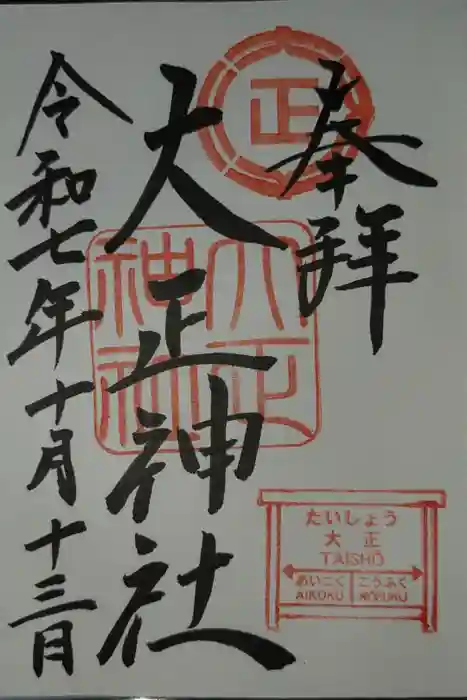 奉拝
正
大正神社
大正神社
令和七年十月十三日
たいしょう
大正
TAISHŌ
あいこく こうふく
AIKOKU KŌFUKU